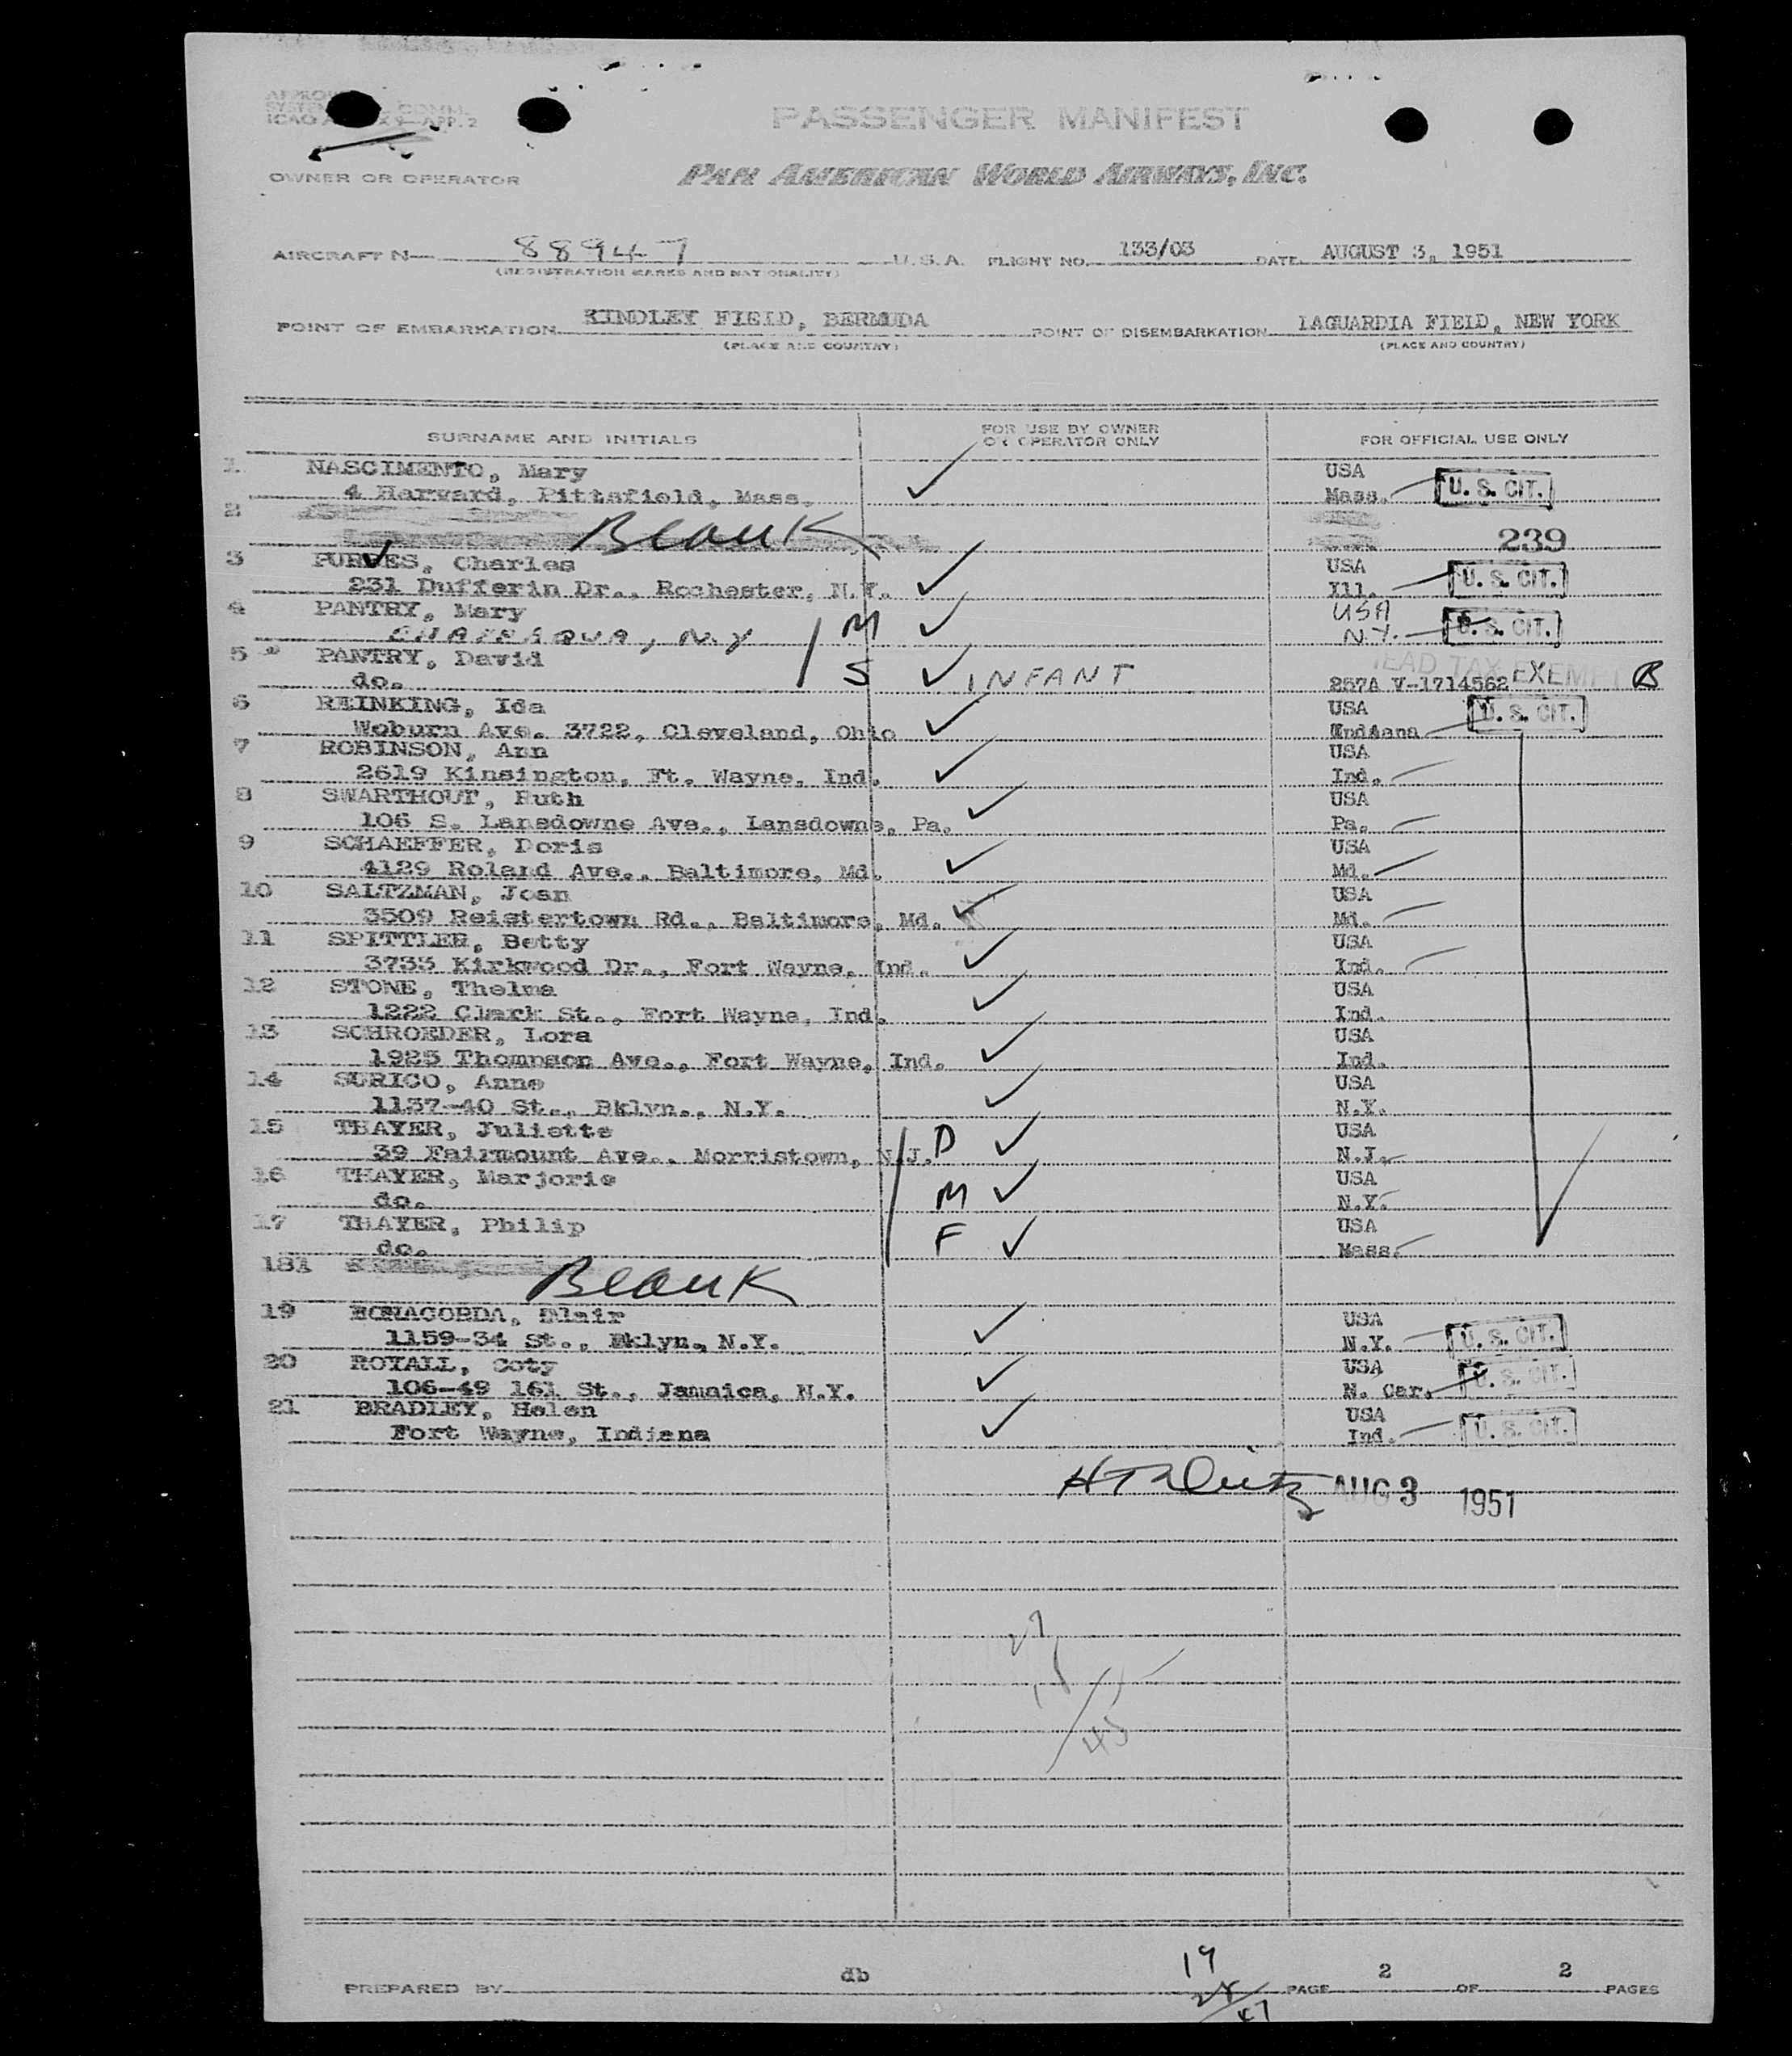 ICAO APP. 2
PASSENGER MANIFEST
OWNER OR OPERATOR PAN AMERICAN WORLD AIRWAYS, INC.
AIRCRAFT N— 88947 U.S.A. FLIGHT NO. 133/03 DATE AUGUST 3, 1951
(REGISTRATION MARKS AND NATIONALITY)
POINT OF EMBARKATION KINDLEY FIELD, BERMUDA POINT OF DISEMBARKATION LAGUARDIA FIELD, NEW YORK
(PLACE AND COUNTRY) (PLACE AND COUNTRY)
SURNAME AND INITIALS FOR USE BY OWNER OR OPERATOR ONLY FOR OFFICIAL USE ONLY
1 NASCIMENTO, Mary USA
4 Harvard, Pittsfield, Mass. ✓ Mass. U. S. CIT.
2 Blank 239
3 PURVES, Charles USA
231 Dufferin Dr., Rochester, N.Y. ✓ Ill. U. S. CIT.
4 PANTRY, Mary USA
CHAPPAQUA, N.Y M ✓ N.Y. U. S. CIT.
5 PANTRY, David HEAD TAX EXEMPT
do. S ✓ INFANT 257A V-1714562
6 REINKING, Ida USA U. S. CIT.
Woburn Ave. 3722, Cleveland, Ohio ✓ Indiana
7 ROBINSON, Ann USA
2619 Kinsington, Ft. Wayne, Ind. ✓ Ind.
8 SWARTHOUT, Ruth USA
106 S. Lansdowne Ave., Lansdowne, Pa. ✓ Pa.
9 SCHAEFFER, Doris USA
4129 Roland Ave., Baltimore, Md. ✓ Md.
10 SALTZMAN, Joan USA
3509 Reistertown Rd., Baltimore, Md. ✓ Md.
11 SPITTLER, Betty USA
3733 Kirkwood Dr., Fort Wayne, Ind. ✓ Ind.
12 STONE, Thelma USA
1222 Clark St., Fort Wayne, Ind. ✓ Ind.
13 SCHROEDER, Lora USA
1925 Thompson Ave., Fort Wayne, Ind. ✓ Ind.
14 SURICO, Anne USA
1137-40 St., Bklyn., N.Y. ✓ N.Y.
15 THAYER, Juliette USA
39 Fairmount Ave., Morristown, N.J. D ✓ N.J.
16 THAYER, Marjorie USA
do. M ✓ N.Y.
17 THAYER, Philip USA
do. F ✓ Mass.
18 Blank
19 BONACORDA, Blair USA
1159-34 St., Bklyn., N.Y. ✓ N.Y. U. S. CIT.
20 ROYALL, Coty USA
106-49 161 St., Jamaica, N.Y. ✓ N. Car. U. S. CIT.
21 BRADLEY, Helen USA
Fort Wayne, Indiana ✓ Ind. U. S. CIT.
AUG 3 1951
45
19
28
47
PREPARED BY db PAGE 2 OF 2 PAGES